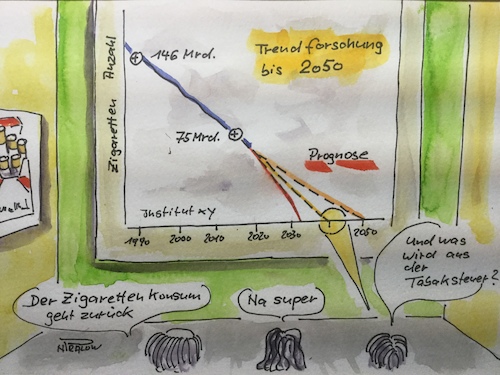 Zigaretten Anzahl
146 Mrd.
75 Mrd.
Trendforschung
bis 2050
Prognose
Institut xy
1990 2000 2010 2020 2030 2050
Der Zigaretten Konsum
geht zurück
Na super
Und was
wird aus
der
Tabaksteuer?